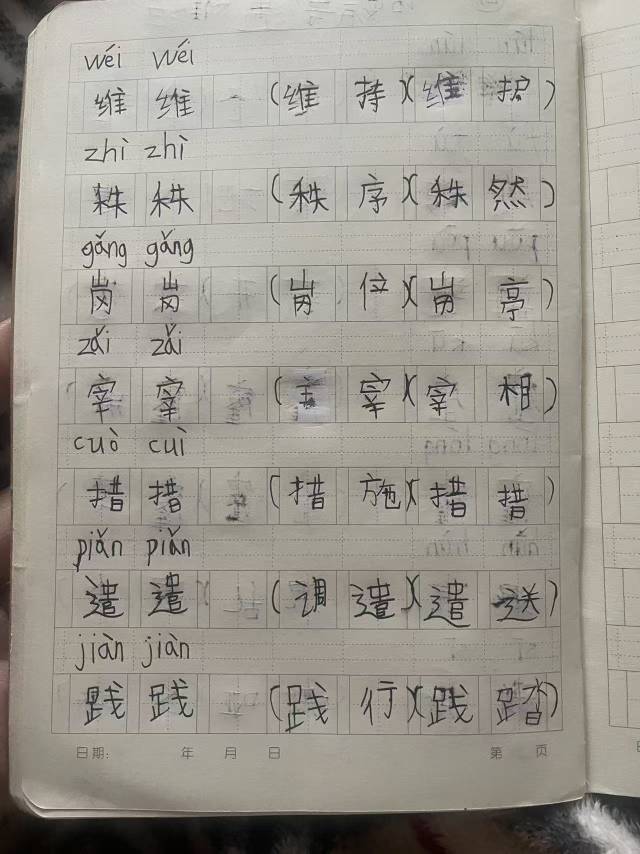 wéi wéi
维 维 (维 持)(维 护)
zhì zhì
秩 秩 (秩 序)(秩 然)
gǎng gǎng
岗 岗 (岗 位)(岗 亭)
zǎi zǎi
宰 宰 (主 宰)(宰 相)
cuò cuì
措 措 (措 施)(措 措)
piǎn piǎn
遣 遣 (调 遣)(遣 送)
jiàn jiàn
践 践 (践 行)(践 踏)
日期: 年 月 日 第 页